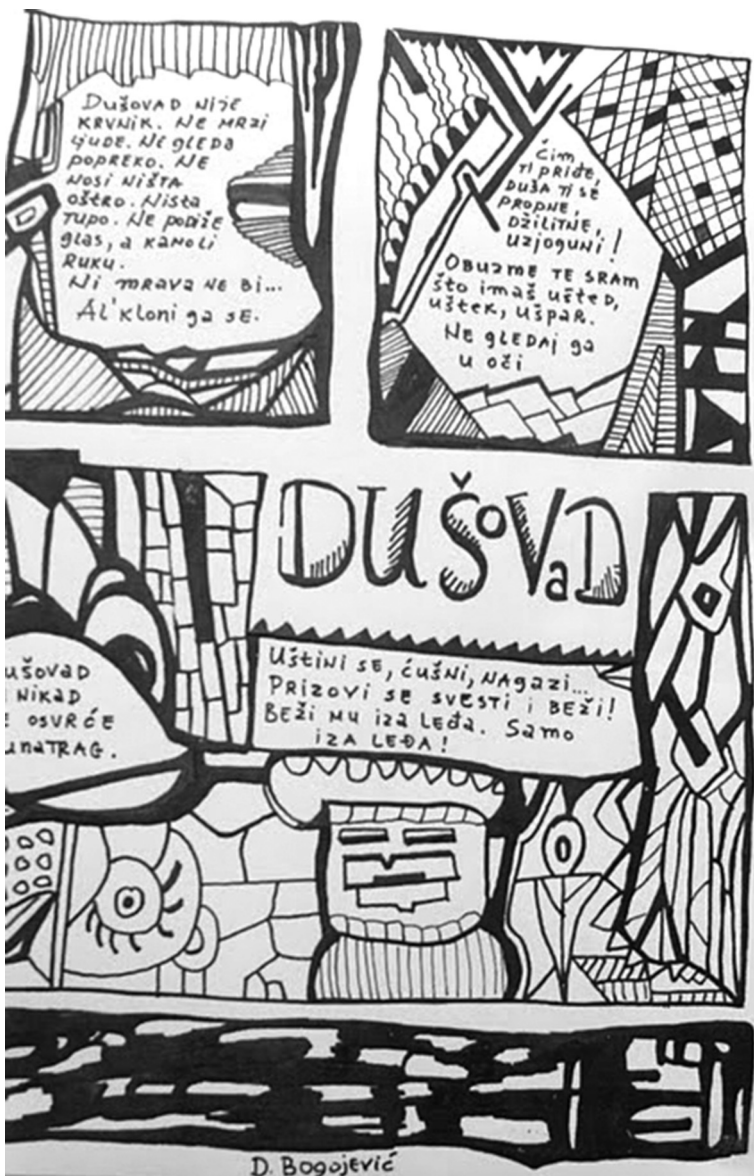 Dušovad nije
krvnik. Ne mrzi
ljude. Ne gleda
popreko. Ne
nosi ništa
oštro. Ništa
tupo. Ne podiže
glas, a kamoli
ruku.
Ni mrava ne bi...
Al' kloni ga se.
Čim
ti priđe,
duša ti se
propne,
džilitne,
uzjoguni!
Obuzme te sram
što imaš ušted,
uštek, ušpar.
Ne gledaj ga
u oči
DUŠOVAD
Uštini se, ćušni, nagazi...
Prizovi se svesti i beži!
Beži mu iza leđa. Samo
iza leđa!
ušovad
nikad
osvrće
unatrag.
D. Bogojević